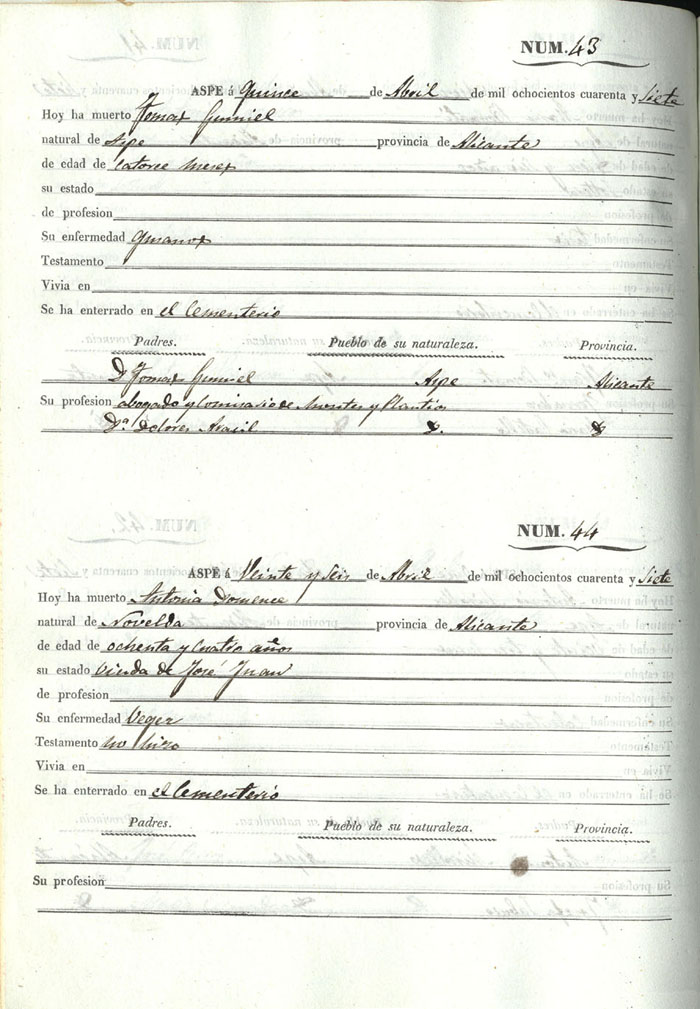 NUM. 43
ASPE á Quince de Abril de mil ochocientos cuarenta y Siete
Hoy ha muerto Tomas Gumiel
natural de Aspe provincia de Alicante
de edad de Catorce meses
su estado
de profesion
Su enfermedad Gusanos
Testamento
Vivia en
Se ha enterrado en el Cementerio
Padres. Pueblo de su naturaleza. Provincia.
D. Tomas Gumiel Aspe Alicante
Su profesion abogado y Comisario de Montes y Plantios
Dª Dolores Arasil D. D
NUM. 44
ASPE á Veinte y Seis de Abril de mil ochocientos cuarenta y Siete
Hoy ha muerto Antonia Domence
natural de Novelda provincia de Alicante
de edad de ochenta y Cuatro años
su estado Viuda de José Juan
de profesion
Su enfermedad Veger
Testamento no hizo
Vivia en
Se ha enterrado en el Cementerio
Padres. Pueblo de su naturaleza. Provincia.
Su profesion